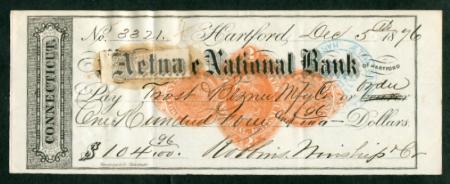 No. 3321. Hartford, Dec 5 1876
Aetna National Bank
OF HARTFORD
Pay Trost & Mfg Co or order
One Hundred four 96/100 Dollars.
$ 104 96/100. Robbins, Winship & Co
CONNECTICUT.